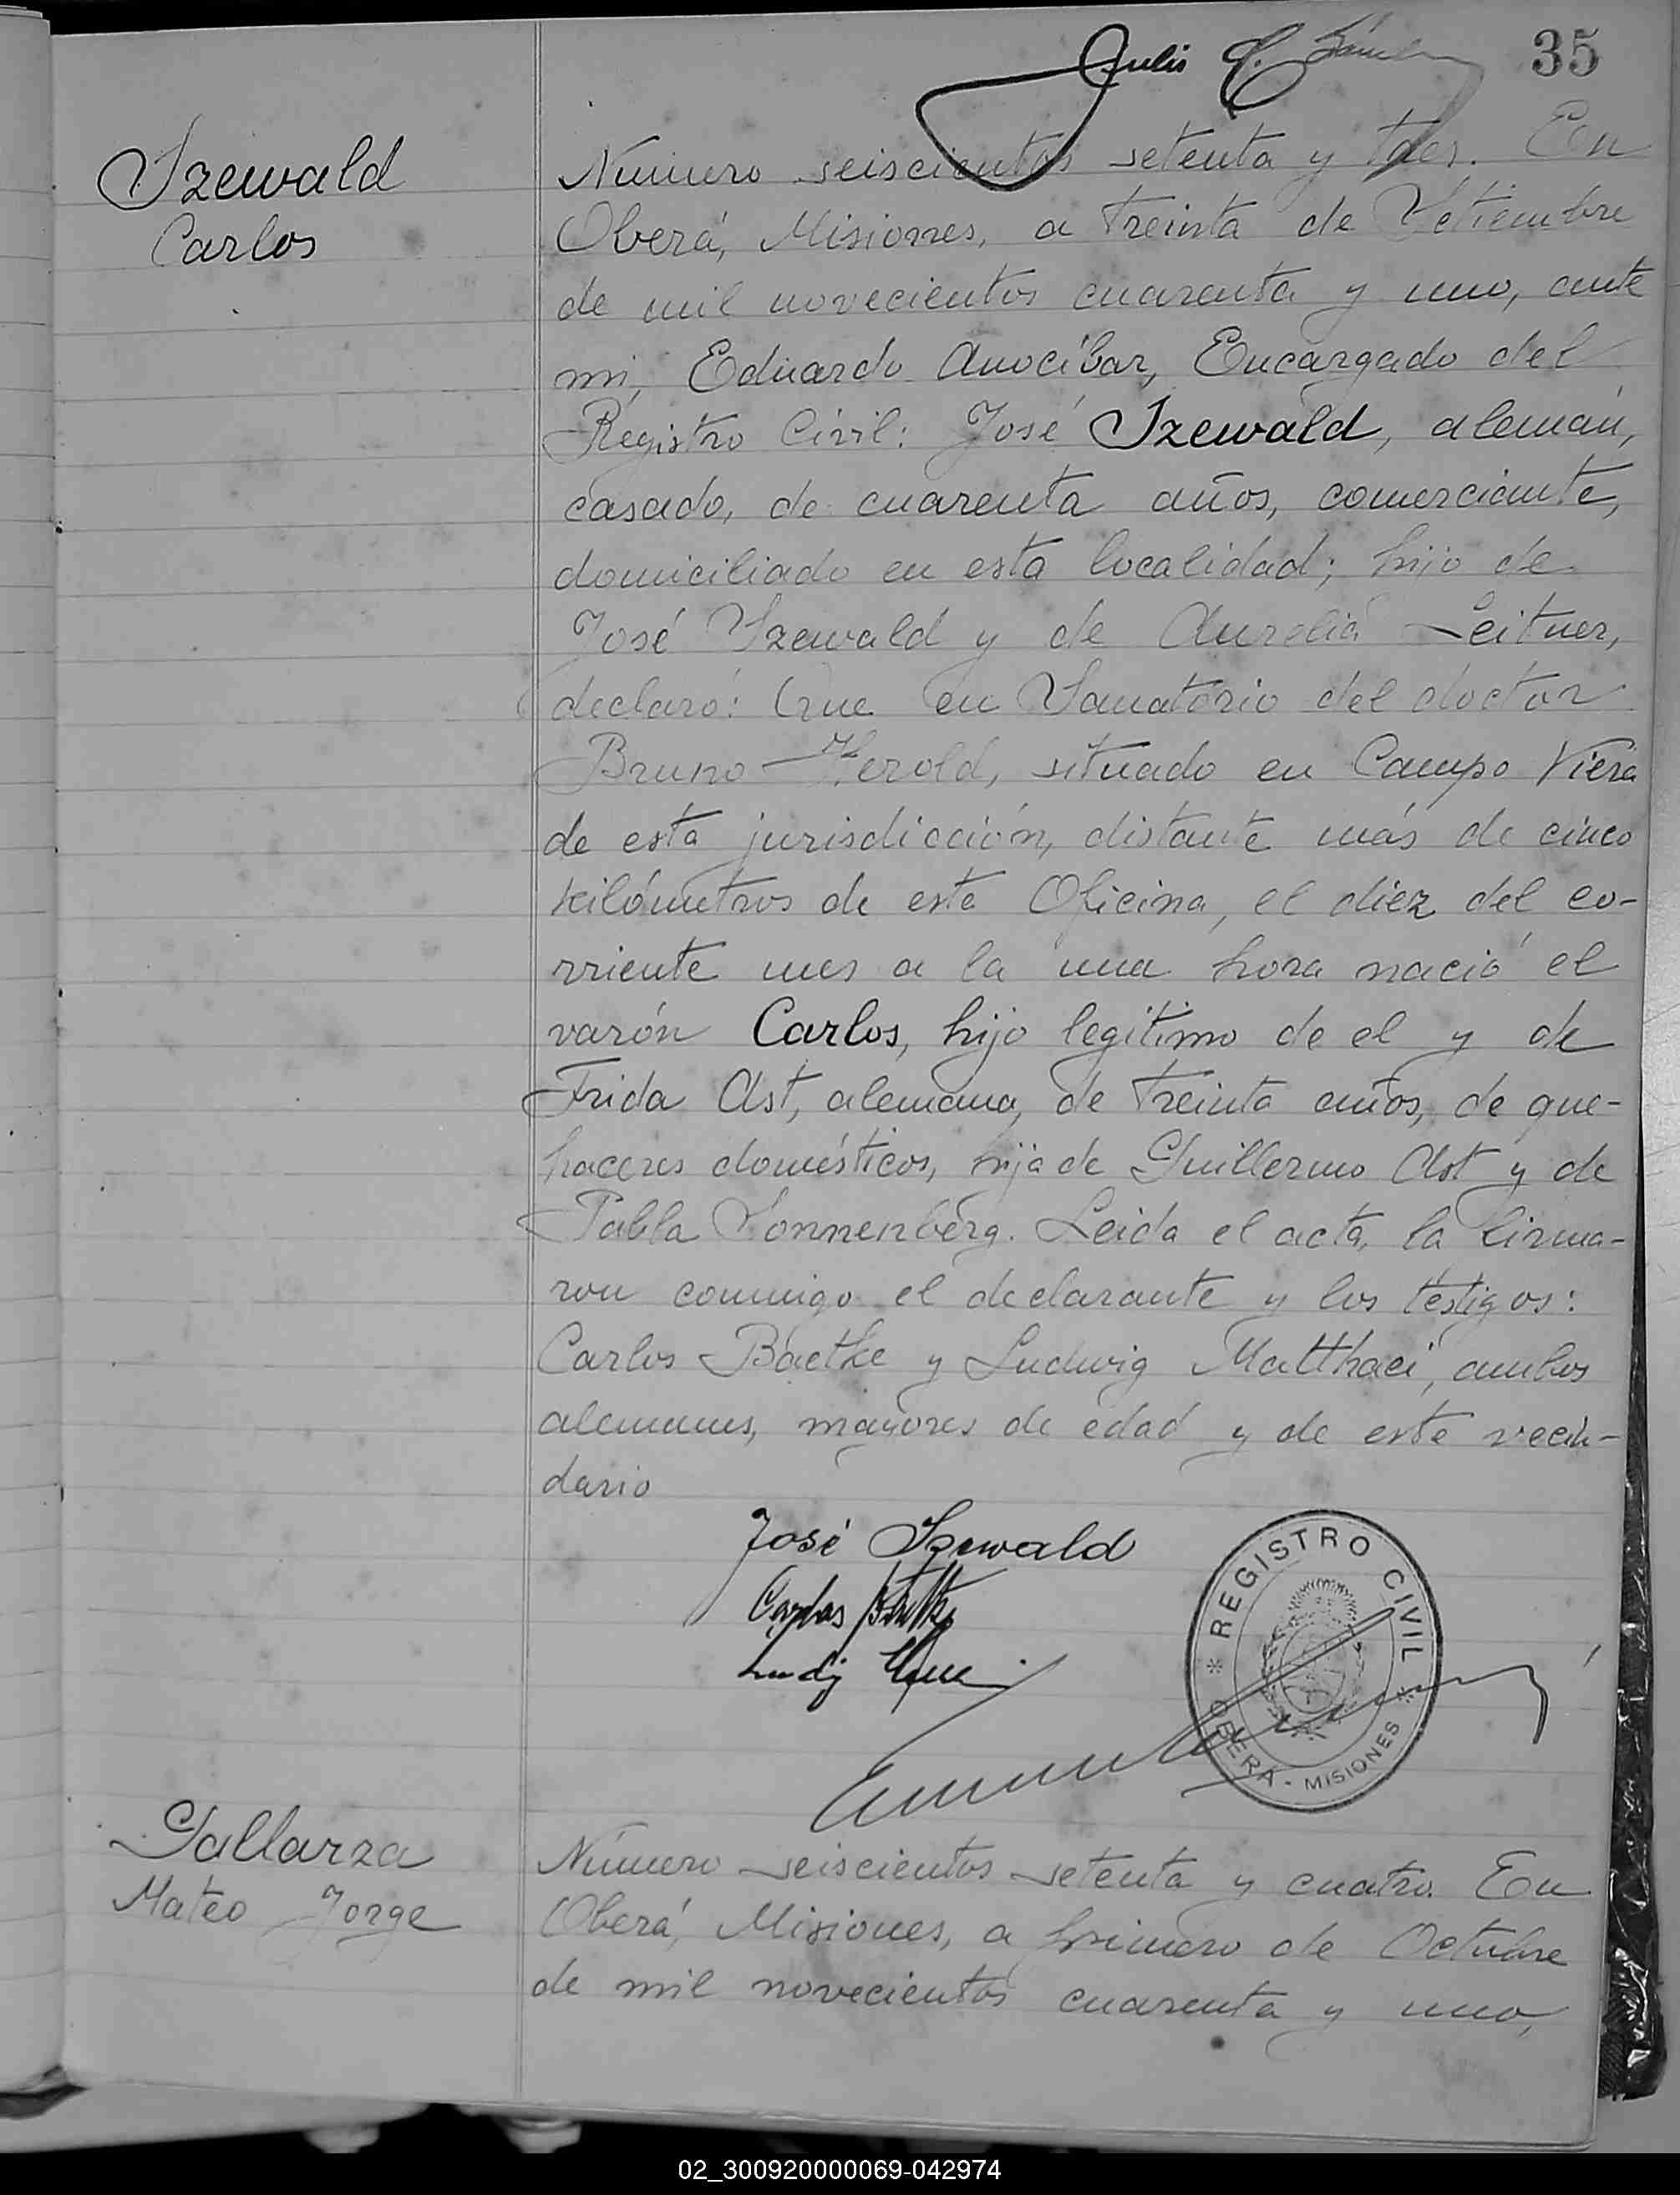 35
Julio
Szewald
Carlos
Número seiscientos setenta y tres. En
Oberá, Misiones, a treinta de Setiembre
de mil novecientos cuarenta y uno, ante
mi, Eduardo Anocíbar, Encargado del
Registro Civil: José Szewald, alemán,
casado, de cuarenta años, comerciante,
domiciliado en esta localidad; hijo de
José Szewald y de Aurelia Leitner,
declaró: Que en Sanatorio del doctor
Bruno Herold, situado en Campo Viera
de esta jurisdicción, distante más de cinco
kilómetros de esta Oficina, el diez del co-
rriente mes a la una hora nació el
varón Carlos, hijo legítimo de el y de
Frida Ast, alemana, de treinta años, de que-
haceres domésticos, hija de Guillermo Ast y de
Pabla Sonnenberg. Leida el acta, la firma-
ron conmigo el declarante y los testigos:
Carlos Baetke y Ludwig Matthaei, ambos
alemanes, mayores de edad y de este vecin-
dario
José Szewald
Carlos
REGISTRO CIVIL
OBERÁ - MISIONES
Gallarza
Mateo Jorge
Número seiscientos setenta y cuatro. En
Oberá, Misiones, a primero de Octubre
de mil novecientos cuarenta y uno,
02_300920000069-042974